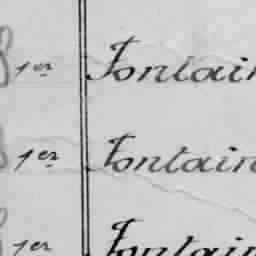 1er Fontain
1er Fontain
1er Fontain